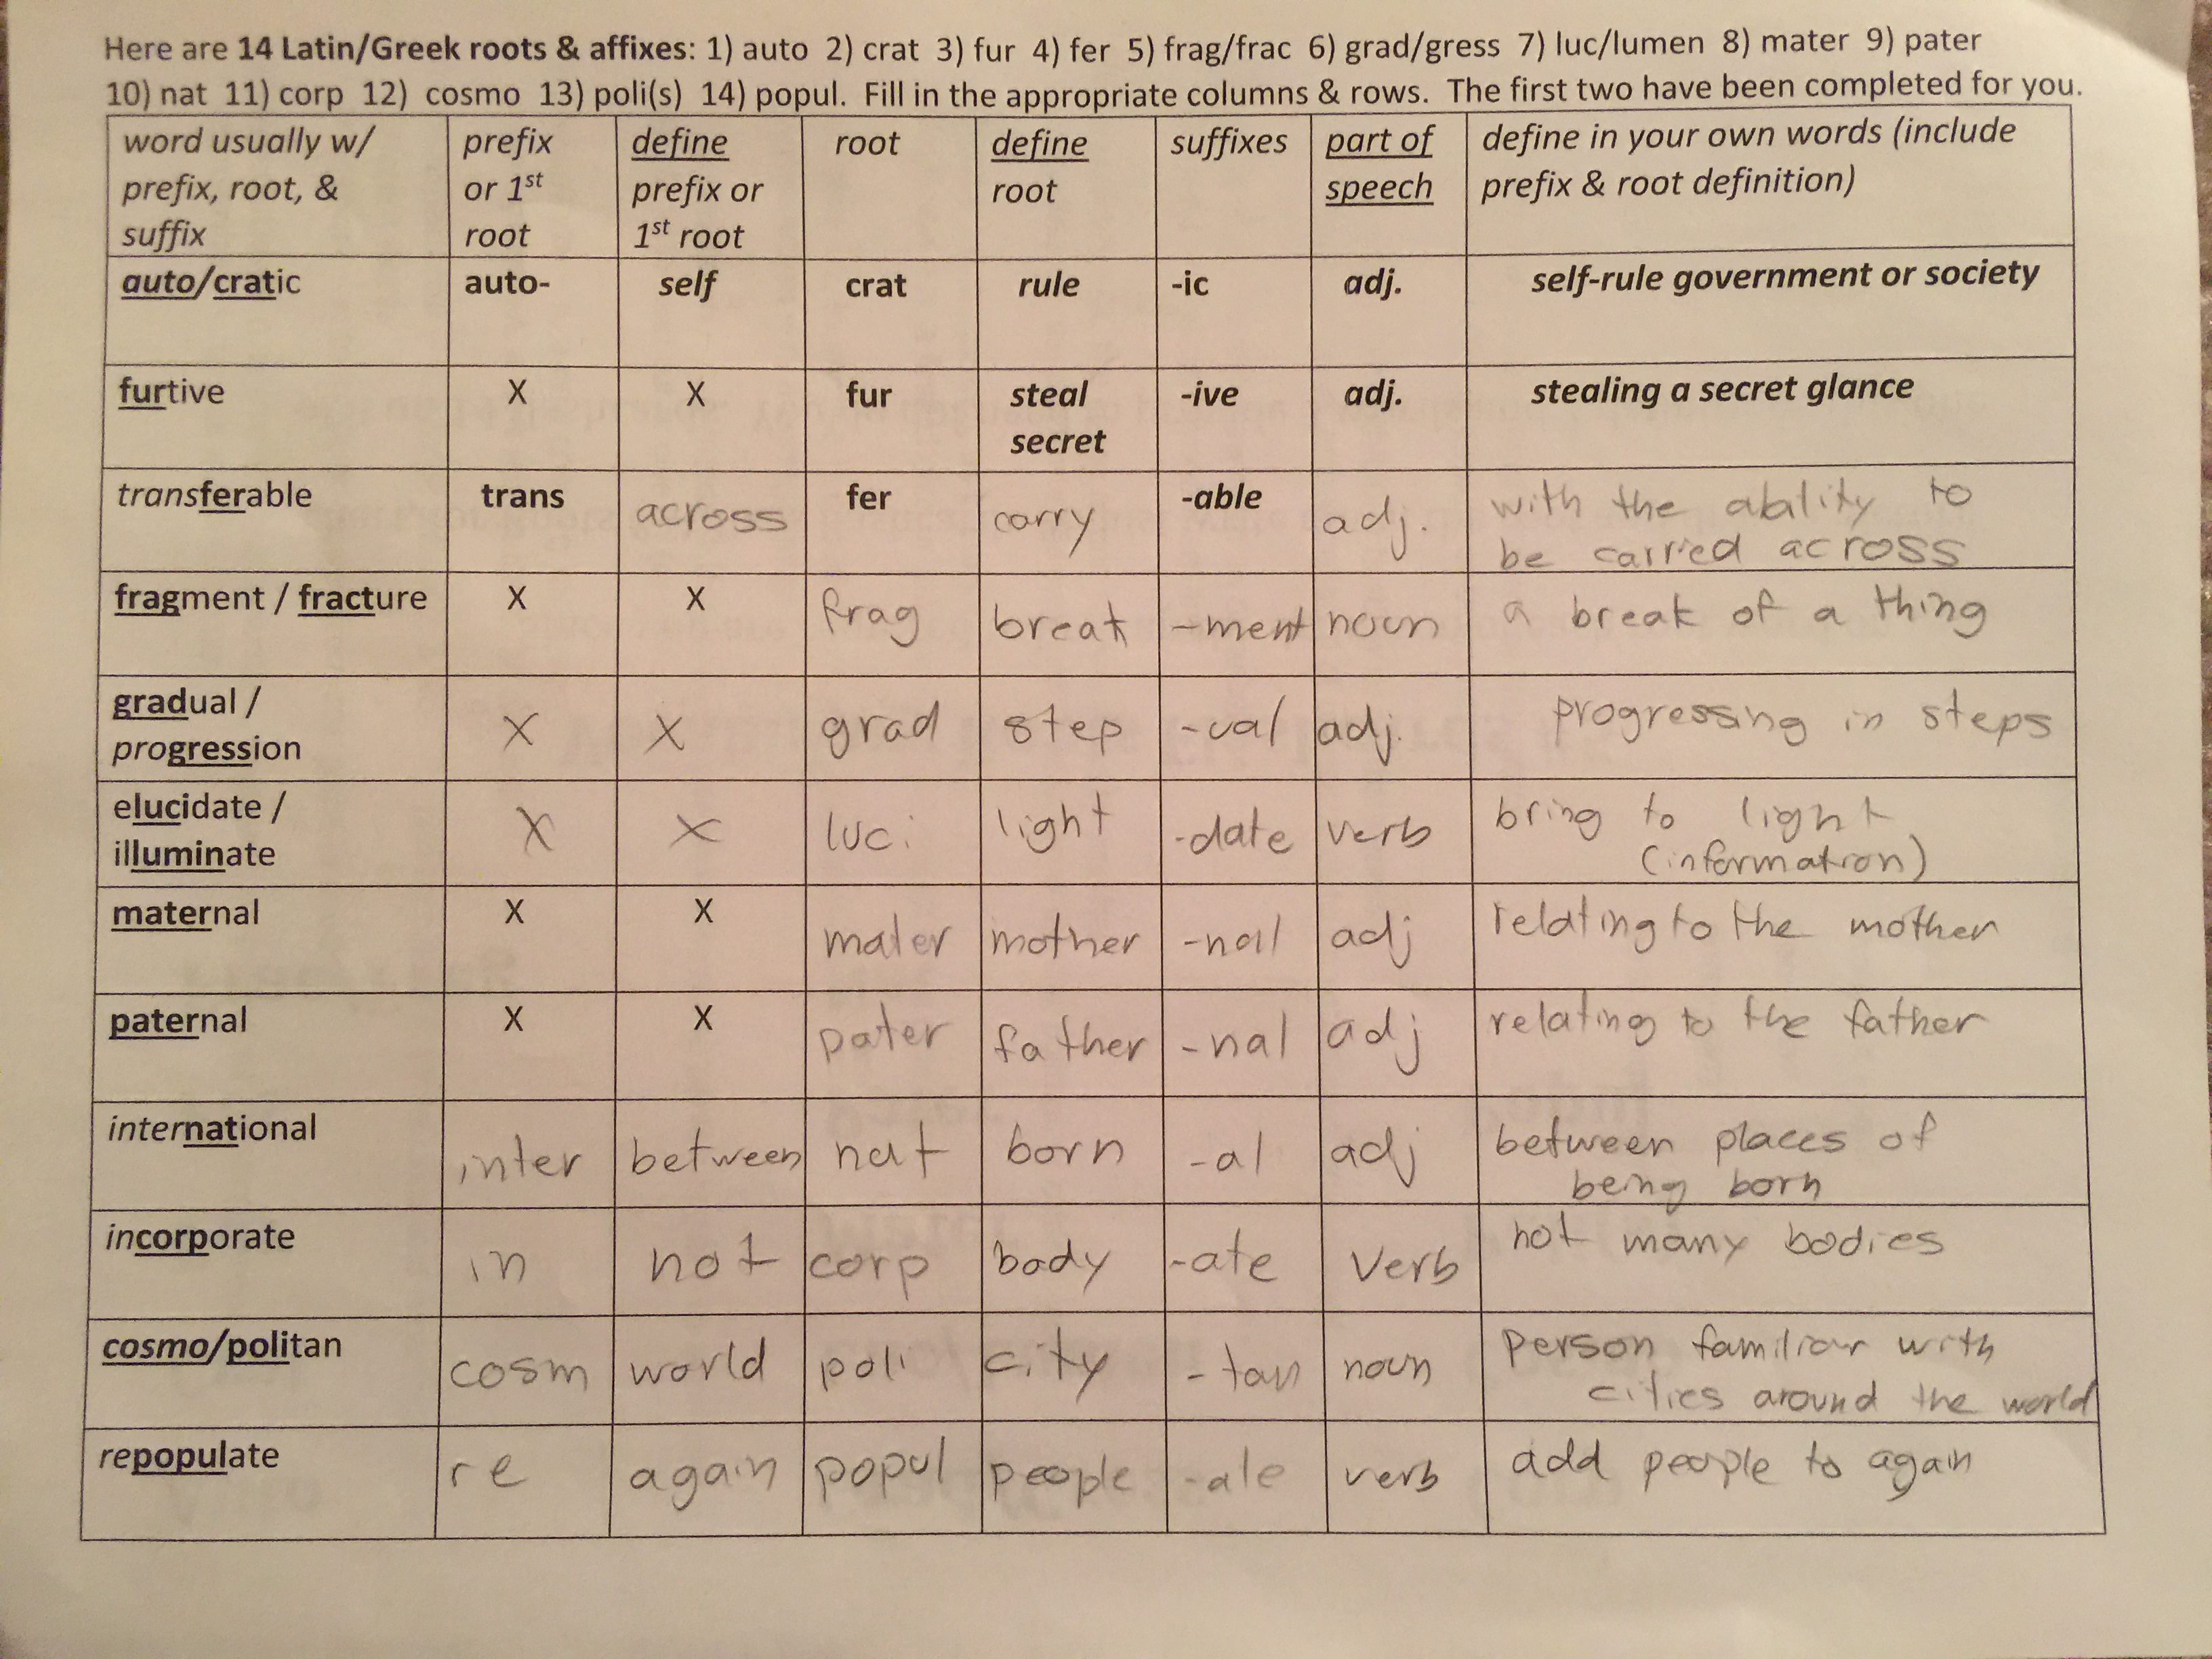 Here are 14 Latin/Greek roots & affixes: 1) auto 2) crat 3) fur 4) fer 5) frag/frac 6) grad/gress 7) luc/lumen 8) mater 9) pater
10) nat 11) corp 12) cosmo 13) poli(s) 14) popul. Fill in the appropriate columns & rows. The first two have been completed for you.
word usually w/ prefix or define root define suffixes part of define in your own words (include
prefix, root, & or 1st prefix or root speech prefix & root definition)
suffix root 1st root
auto/cratic auto- self crat rule -ic adj. self-rule government or society
furtive X X fur steal -ive adj. stealing a secret glance
secret
transferable trans across fer carry -able adj. with the ability to
be carried across
fragment / fracture X X frag break -ment noun a break of a thing
gradual / X X grad step -ual adj. progressing in steps
progression
elucidate / X X luci light -date verb bring to light
illuminate (information)
maternal X X mater mother -nal adj relating to the mother
paternal X X pater father -nal adj relating to the father
international inter between nat born -al adj between places of
being born
incorporate in not corp body -ate verb not many bodies
cosmo/politan cosm world poli city -tan noun person familiar with
cities around the world
repopulate re again popul people -ate verb add people to again